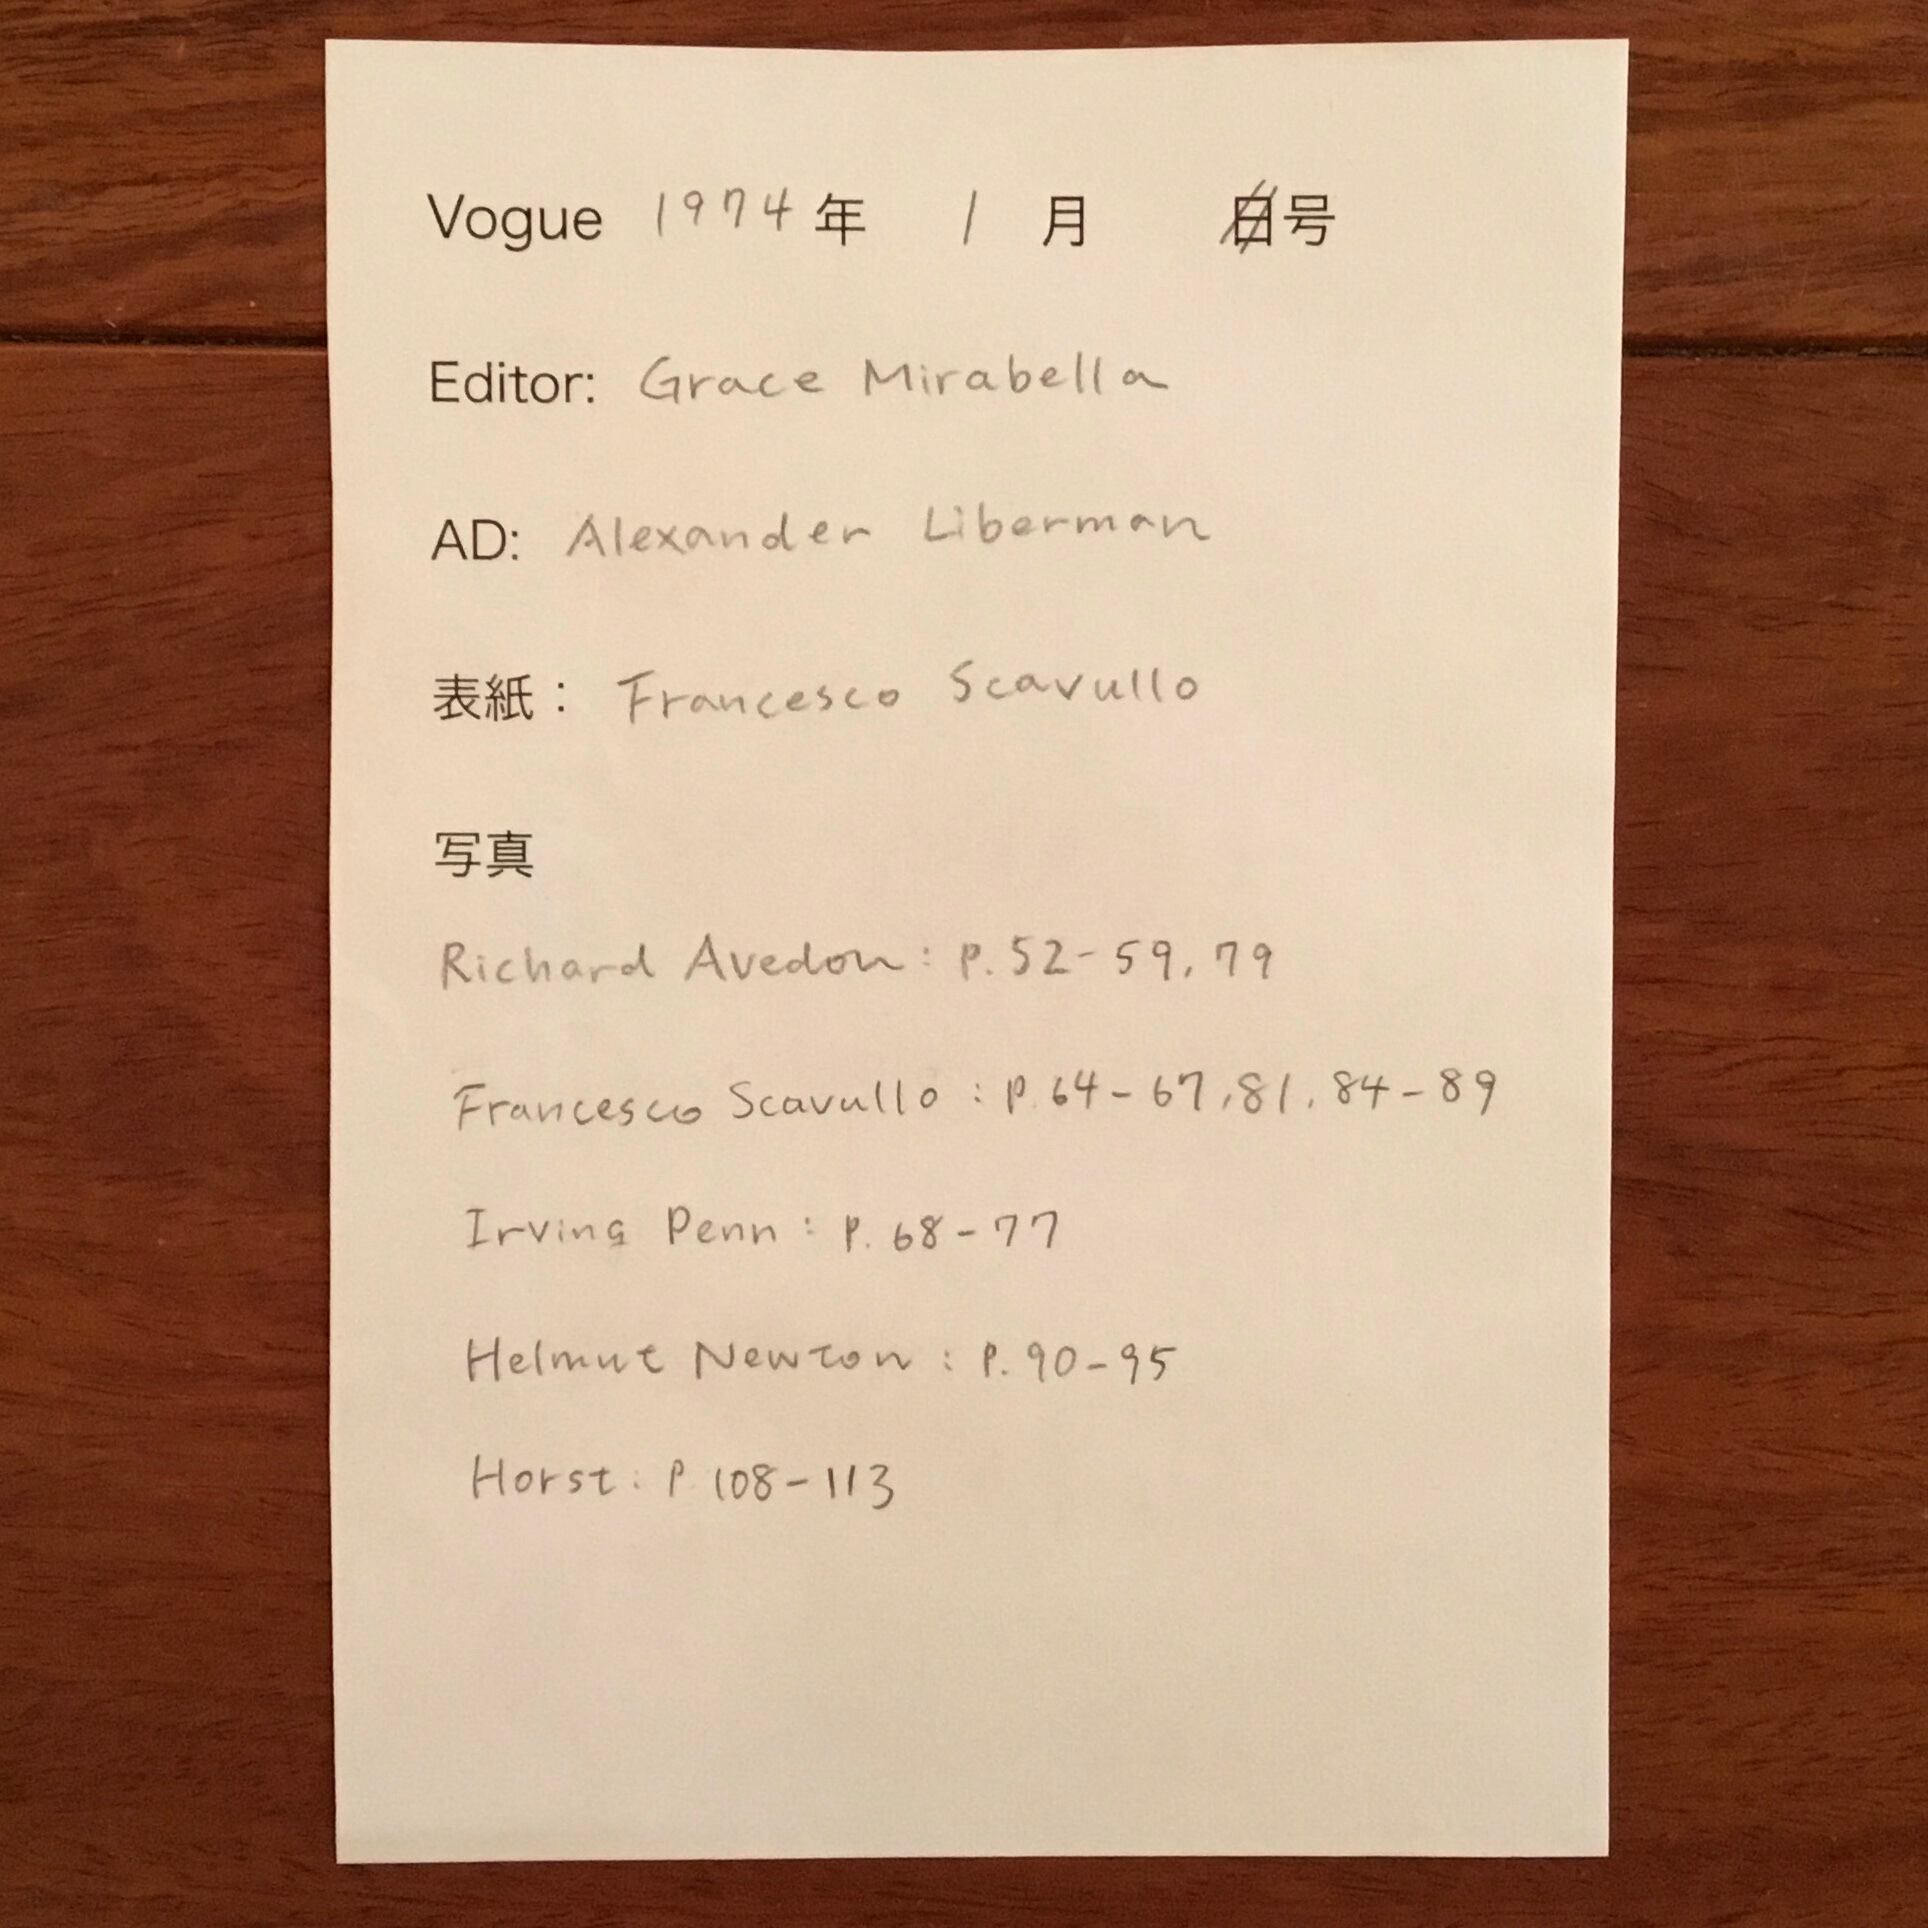 Vogue 1974年 1 月 日号
Editor: Grace Mirabella
AD: Alexander Liberman
表紙： Francesco Scavullo
写真
Richard Avedon: p.52-59,79
Francesco Scavullo: p.64-67,81,84-89
Irving Penn: p.68-77
Helmut Newton: p.90-95
Horst: p.108-113